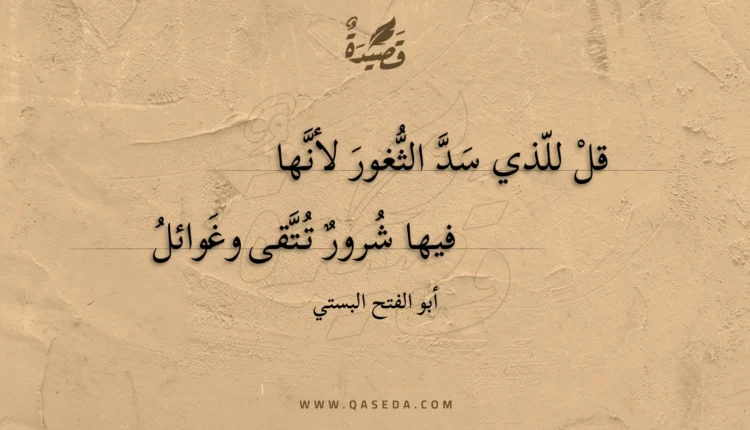 قَصِيدَةٌ
قلْ للّذي سَدَّ الثُّغورَ لأنَّها
فيها شُرورٌ تُتَّقى وغَوائلُ
أبو الفتح البستي
WWW.QASEDA.COM